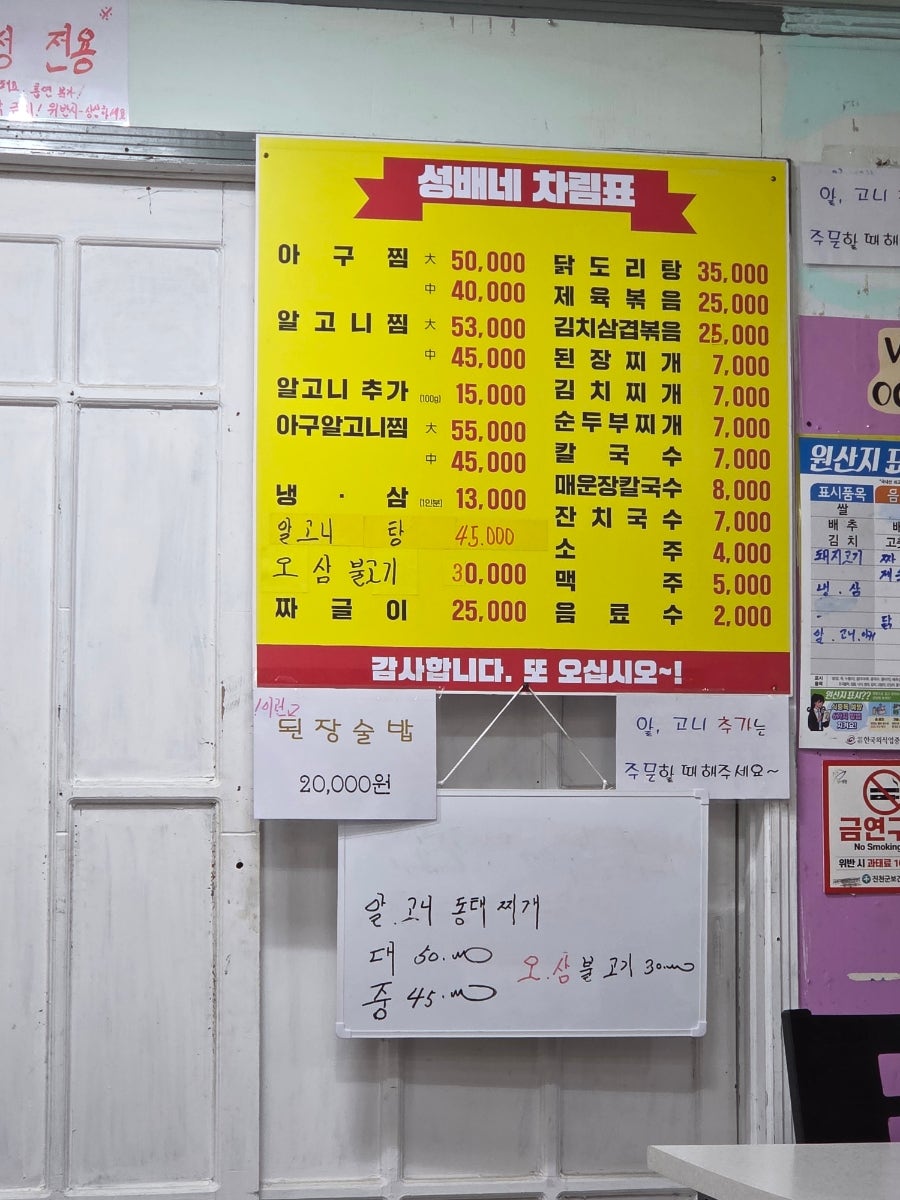 전용
※
성배네 차림표
아 구 찜 大 50,000
中 40,000
알 고 니 찜 大 53,000
中 45,000
알고니 추가 (100g) 15,000
아구알고니찜 大 55,000
中 45,000
냉 · 삼 (1인분) 13,000
알고니 탕 45.000
오 삼 불고기 30,000
짜 글 이 25,000
닭 도 리 탕 35,000
제 육 볶 음 25,000
김치삼겹볶음 25,000
된 장 찌 개 7,000
김 치 찌 개 7,000
순두부찌개 7,000
칼 국 수 7,000
매운장칼국수 8,000
잔 치 국 수 7,000
소 주 4,000
맥 주 5,000
음 료 수 2,000
감사합니다. 또 오십시오~!
된장술밥
20,000원
알, 고니 추가는
주문할 때 해주세요~
알.고니 동태찌개
대 50.000
중 45.000
오.삼불고기 30.000
알, 고니
주문할 때 해
원산지 표
표시품목
쌀
배 추
김 치
돼지고기
냉 . 삼
닭
원산지 표시??
금연구
No Smoking
위반 시 과태료 10
진천군보건